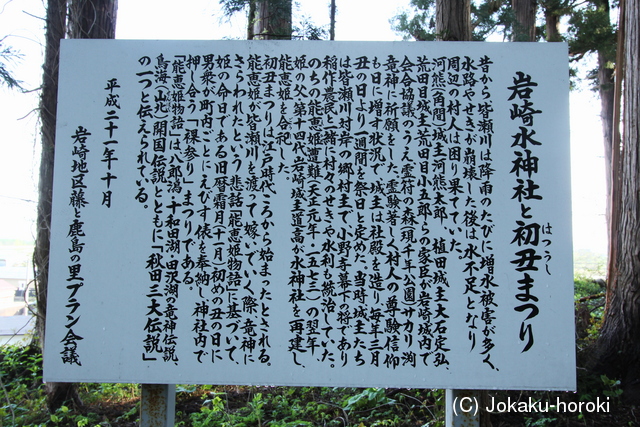 岩崎水神社と初丑まつり
はつうし
昔から皆瀬川は降雨のたびに増水被害が多く、
水路やせきが崩壊した後は水不足となり
周辺の村人は困り果てていた。
河熊(角間)城主河熊太郎、植田城主大石定弘、
荒田目城主荒田目小五郎らの家臣が岩崎城内で
会合協議のうえ霊符の森(現千年公園)サカリ渕
竜神に祈願をした。霊験著しく村人の尊験信仰
も日に増す状況で、城主は社殿を造り毎年三月
丑の日より一週間を祭日と定めた。当時城主たち
は皆瀬川村岸の郷村主で小野寺幕下の将であり
稲作農民と諸村々のせきや水利も統治していた。
のちの能恵姫遭難(天正元年・一五七三)の翌年、
姫の父、第十四代岩崎城主道高が水神社を再建し
能恵姫を合祀した。
初丑まつりは江戸時代ころから始まったとされる。
能恵姫が皆瀬川を渡って嫁いでいく際、竜神に
さらわれたという悲話「能恵姫物語」に基づいて、
姫の命日である旧暦霜月(十一月)初めの丑の日に
男衆が町内ごとにえびす俵を奉納し神社内で
押し合う「裸参り」まつりである。
「能恵姫物語」は八郎潟・十和田湖・田沢湖の竜神伝説、
鳥海(山北)開国伝説とともに「秋田三大伝説」
の一つと伝えられている。
平成二十一年十月
岩崎地区藤と鹿島の里プラン会議
(C) Jokaku-horoki